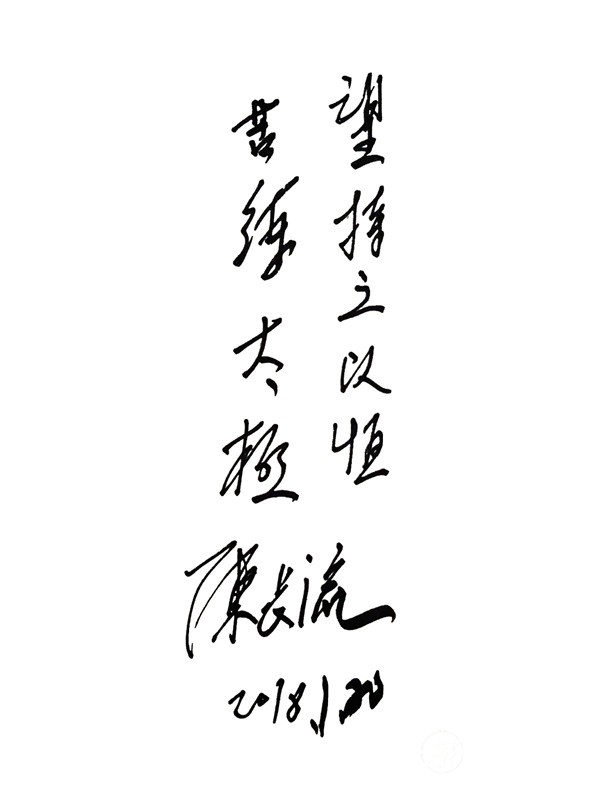 望持之以恒
苦练太極
陳长流
2018.1.20